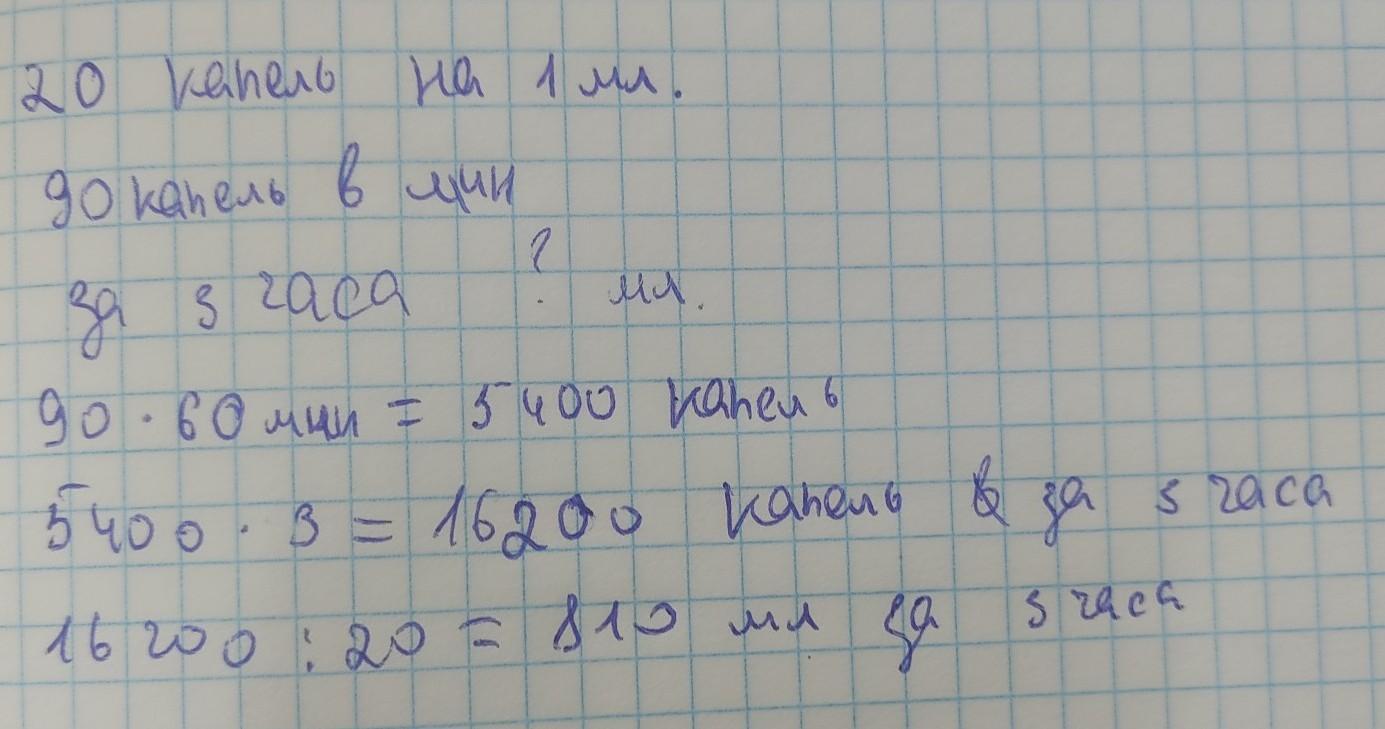 20 капель на 1 мл.
90 капель в мин
за 3 часа ? мл.
90 · 60 мин = 5400 капель
5400 · 3 = 16200 капель за 3 часа
16200 : 20 = 810 мл за 3 часа